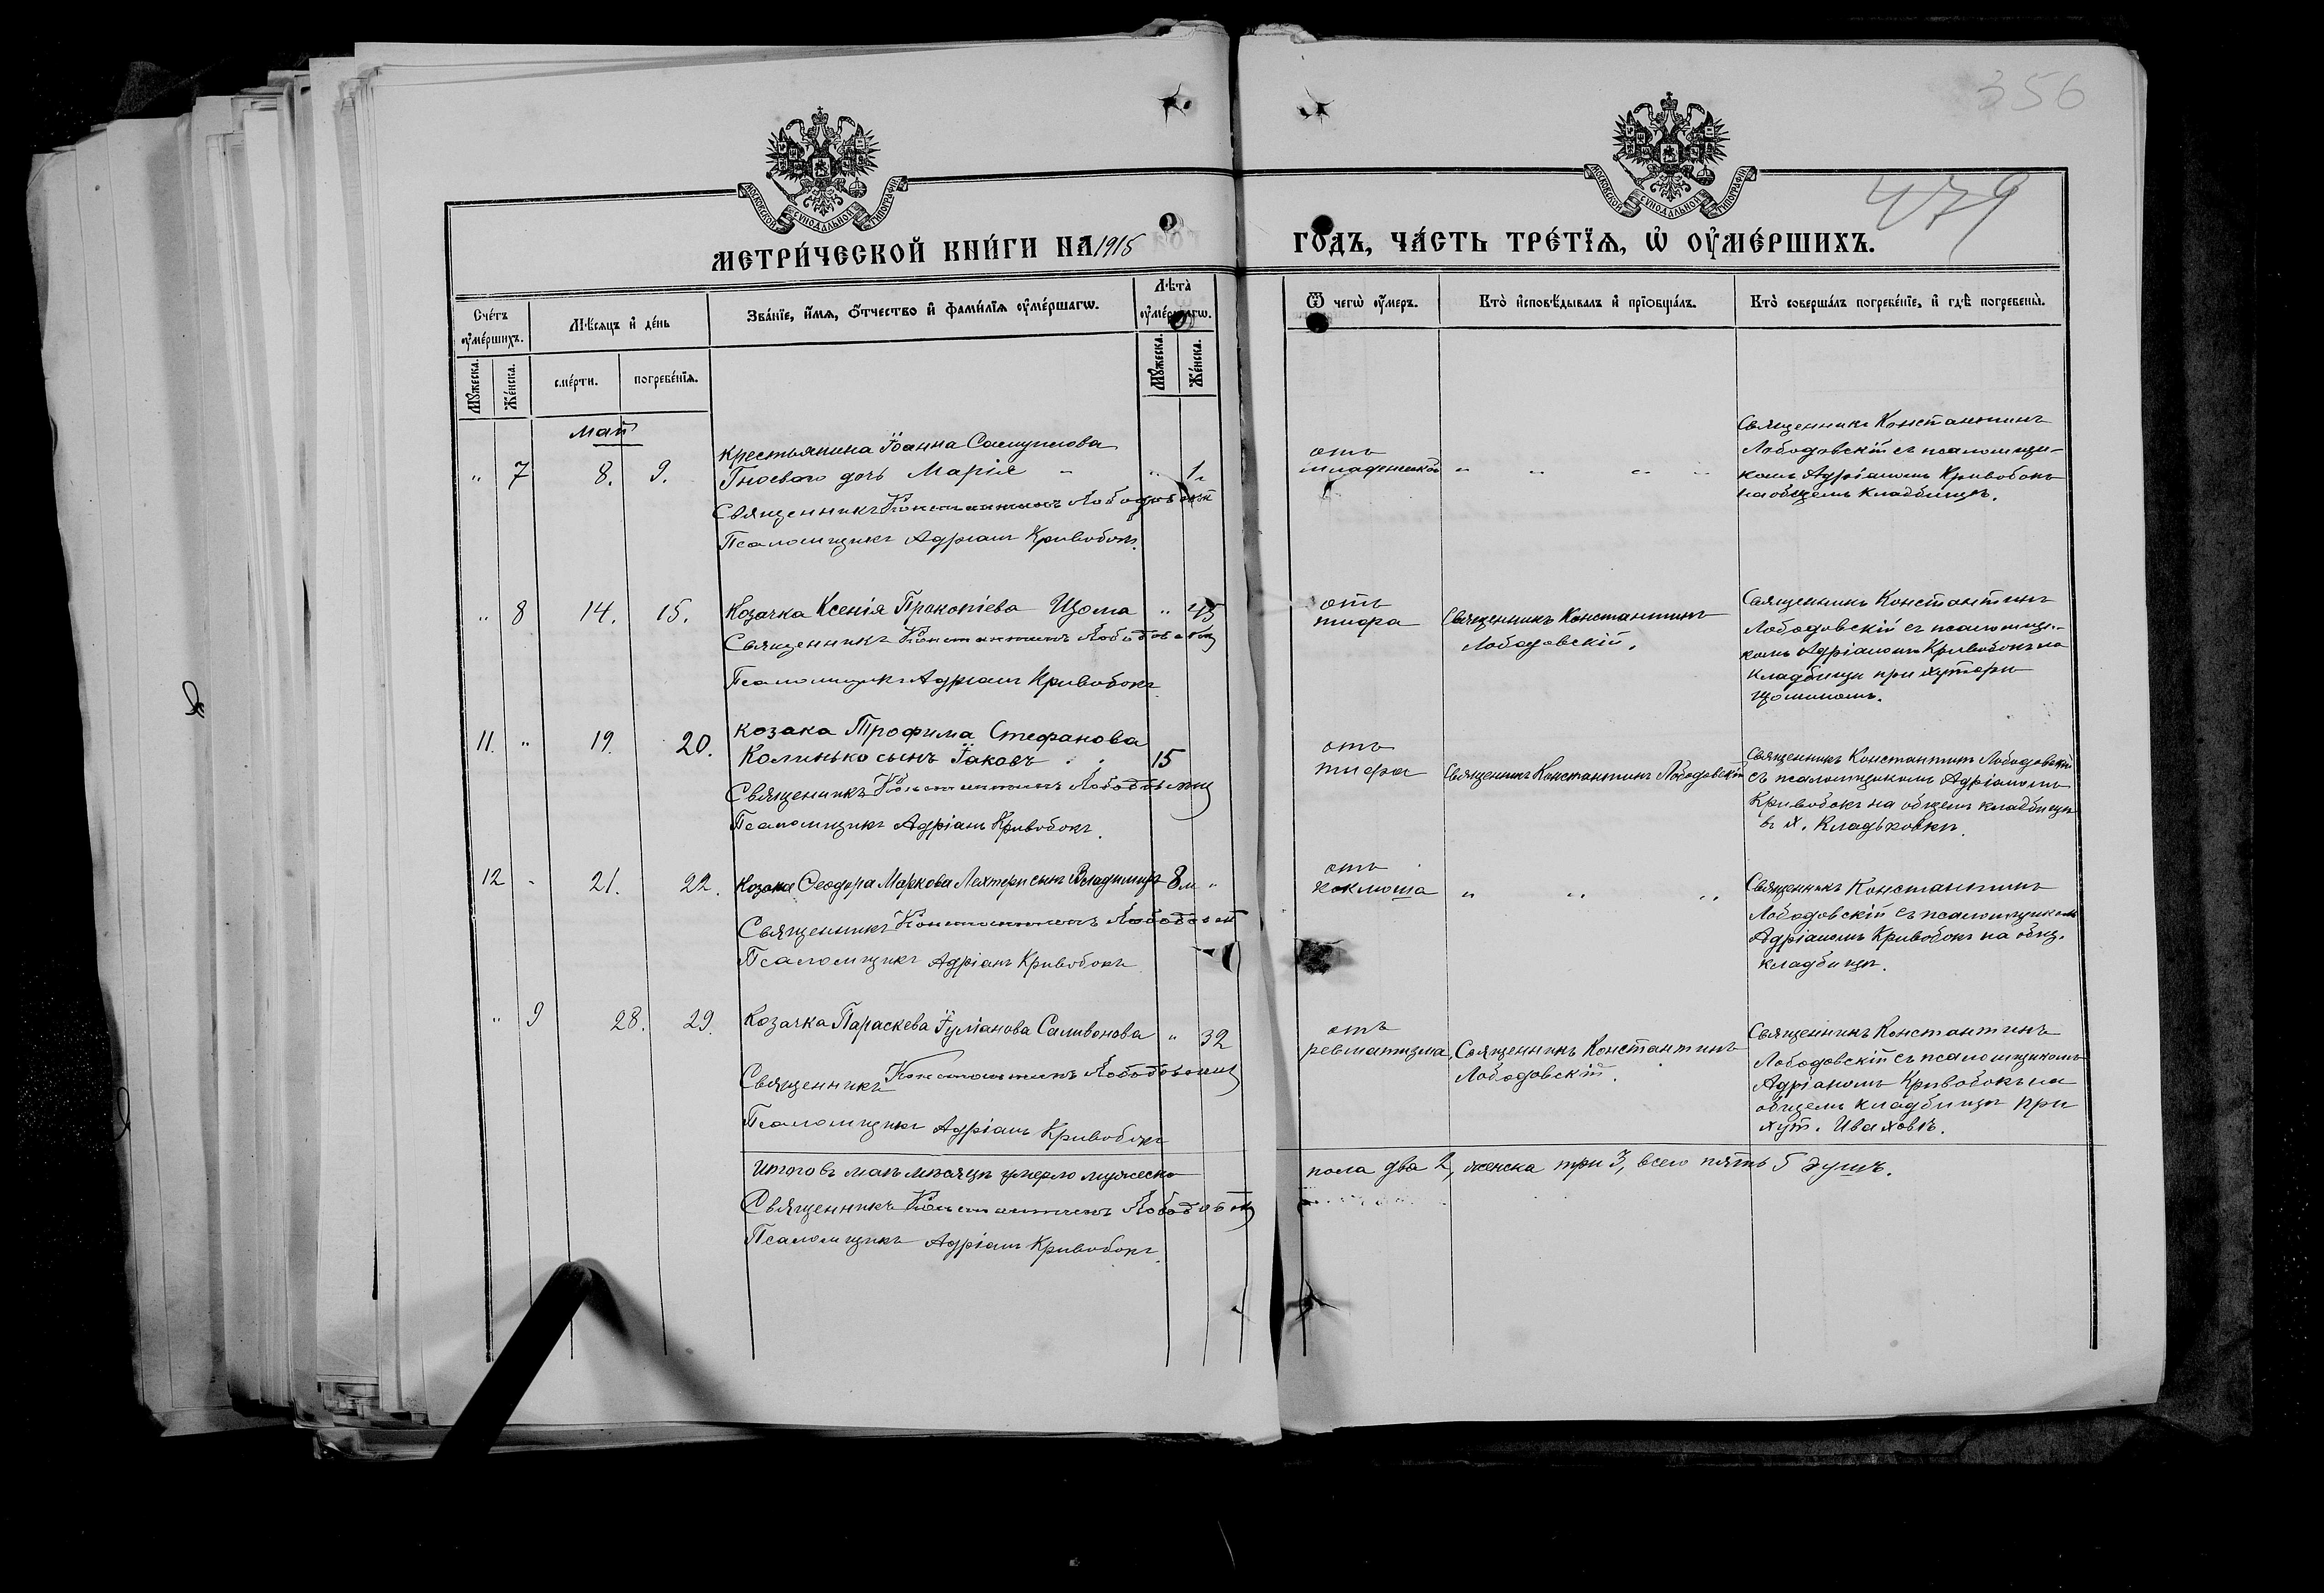 356
479
МОСКОВСКОЙ СѴНОДАЛЬНОЙ ТИПОГРАФІИ
МОСКОВСКОЙ СѴНОДАЛЬНОЙ ТИПОГРАФІИ
МЕТРИ́ЧЕСКОЙ КНИ́ГИ НА 1915 ГО́ДЪ, ЧА́СТЬ ТРЕ́ТІѦ, Ѡ҆ ОУ҆МЕ́РШИХЪ.
Сче́тъ оу҆ме́ршихъ.
Мѣ́сѧцъ и҆ де́нь
Зва́нїе, и҆́мѧ, ѻ҆́тчество и҆ фами́лїѧ оу҆ме́ршагѡ.
Лѣта̀ оу҆ме́ршагѡ.
Ѿ чегѡ̀ оу҆́меръ.
Кто̀ и҆сповѣ́дывалъ и҆ прїѡбща́лъ.
Кто̀ соверша́лъ погребе́нїе, и҆ гдѣ̀ погребены̀.
Мꙋ́жеска.
Же́нска.
сме́рти.
погребе́нїѧ.
Мꙋ́жеска.
Же́нска.
май
" 7 8. 9. Крестьянина Іоанна Самуилова
Гноевого дочь Марія " " 1
Священникъ Константинъ Лободовскій
Псаломщикъ Адріанъ Кривобокъ.
отъ
младенческой " " " "
Священникъ Константинъ
Лободовскій съ псаломщи-
комъ Адріаномъ Кривобокъ
на общемъ кладбищѣ.
" 8 14. 15. Козачка Ксенія Прокопіева Щома " 45
Священникъ Константинъ Лободовскій
Псаломщикъ Адріанъ Кривобокъ
отъ
тифа
Священникъ Константинъ
Лободовскій.
Священникъ Константинъ
Лободовскій съ псаломщи-
комъ Адріаномъ Кривобокъ на
кладбищѣ при хуторѣ
Щоминомъ.
11. " 19. 20. Козака Трофима Стефанова
Колинько сынъ Іаковъ . . 15
Священникъ Константинъ Лободовскій
Псаломщикъ Адріанъ Кривобокъ.
отъ
тифа
Священникъ Константинъ Лободовскій
Священникъ Константинъ Лободовскій
съ псаломщикомъ Адріаномъ
Кривобокъ на общемъ кладбищѣ
въ х. Кладьковкѣ.
12 " 21. 22. Козака Ѳеодора Маркова Лехтери сынъ Владимиръ 8 м "
Священникъ Константинъ Лободовскій
Псаломщикъ Адріанъ Кривобокъ
отъ
коклюша " " "
Священникъ Константинъ
Лободовскій съ псаломщикомъ
Адріаномъ Кривобокъ на общ.
кладбищѣ.
" 9 28. 29. Козачка Параскева Іуліанова Саливонова " 32
Священникъ Константинъ Лободовскій
Псаломщикъ Адріанъ Кривобокъ
отъ
ревматизма,
Священникъ Константинъ
Лободовскій.
Священникъ Константинъ
Лободовскій съ псаломщикомъ
Адріаномъ Кривобокъ на
общемъ кладбищѣ при
хут. Иваховкѣ.
Итого въ маѣ мѣсяцѣ умерло мужеска пола два 2, женска три 3, всего пять 5 душъ.
Священникъ Константинъ Лободовскій
Псаломщикъ Адріанъ Кривобокъ.